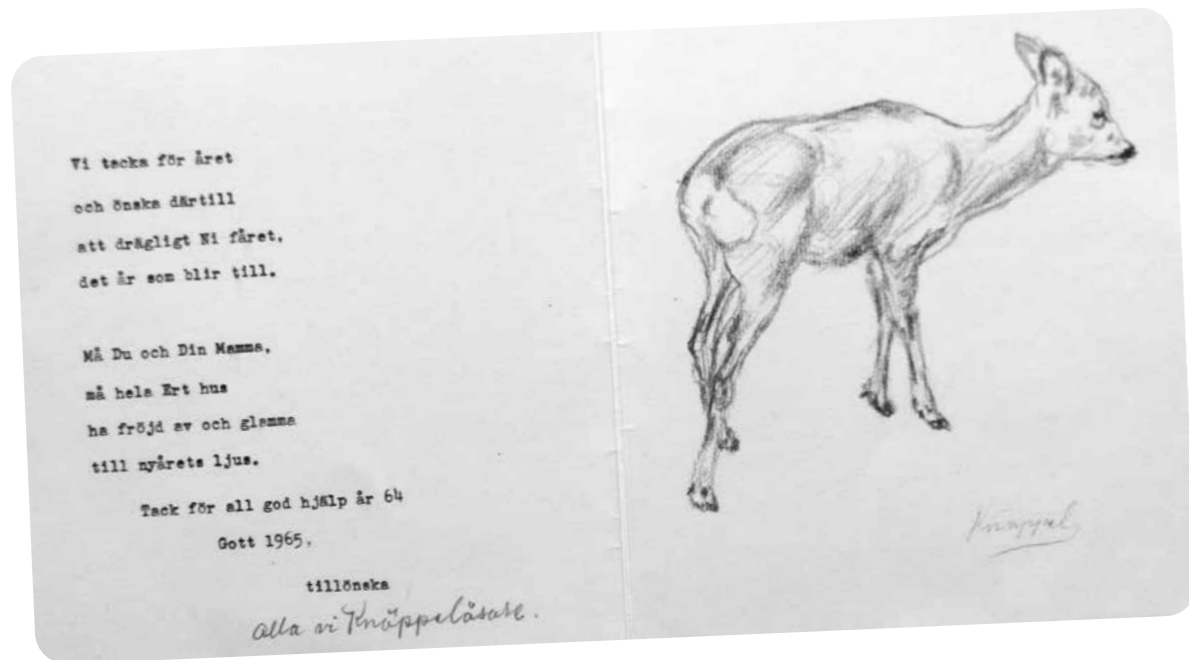 Vi tacka för året
och önska därtill
att drägligt Ni fåret,
det år som blir till.
Må Du och Din Mamma,
må hela Ert hus
ha fröjd av och glamma
till nyårets ljus.
Tack för all god hjälp år 64
Gott 1965,
tillönska
alla vi Knäppelåsare.
Knäppel